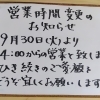 営業時間変更の
お知らせ
9月30日(火)より
4:00からの営業を致します
ひき続きのご愛顧を
どうぞ宜しくお願いします